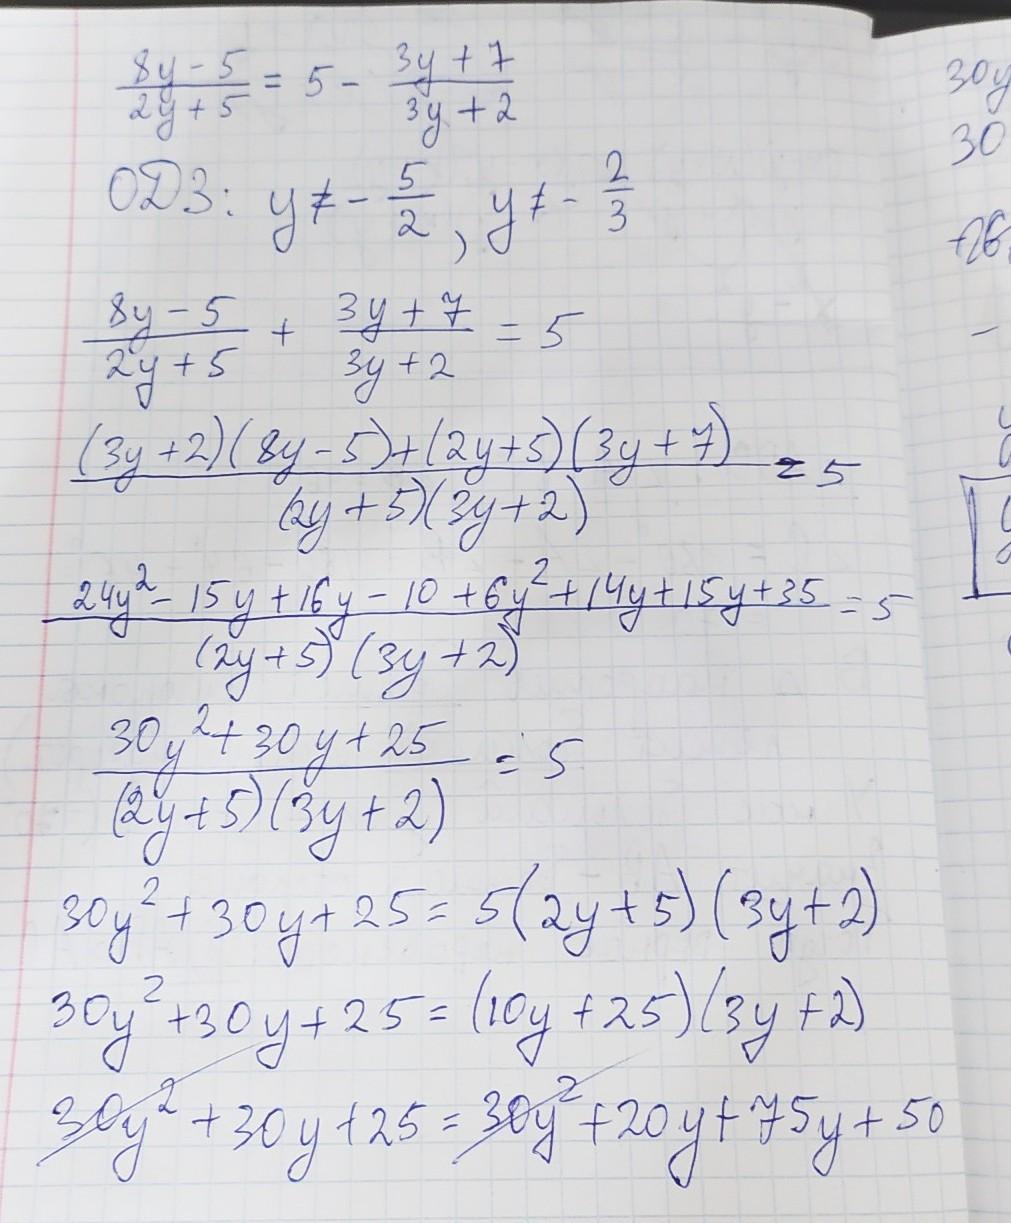 (8y - 5)/(2y + 5) = 5 - (3y + 7)/(3y + 2)
ОДЗ: y ≠ - 5/2, y ≠ - 2/3
(8y - 5)/(2y + 5) + (3y + 7)/(3y + 2) = 5
((3y + 2)(8y - 5) + (2y + 5)(3y + 7))/((2y + 5)(3y + 2)) = 5
(24y² - 15y + 16y - 10 + 6y² + 14y + 15y + 35)/((2y + 5)(3y + 2)) = 5
(30y² + 30y + 25)/((2y + 5)(3y + 2)) = 5
30y² + 30y + 25 = 5(2y + 5)(3y + 2)
30y² + 30y + 25 = (10y + 25)(3y + 2)
30y² + 30y + 25 = 30y² + 20y + 75y + 50
30y
30